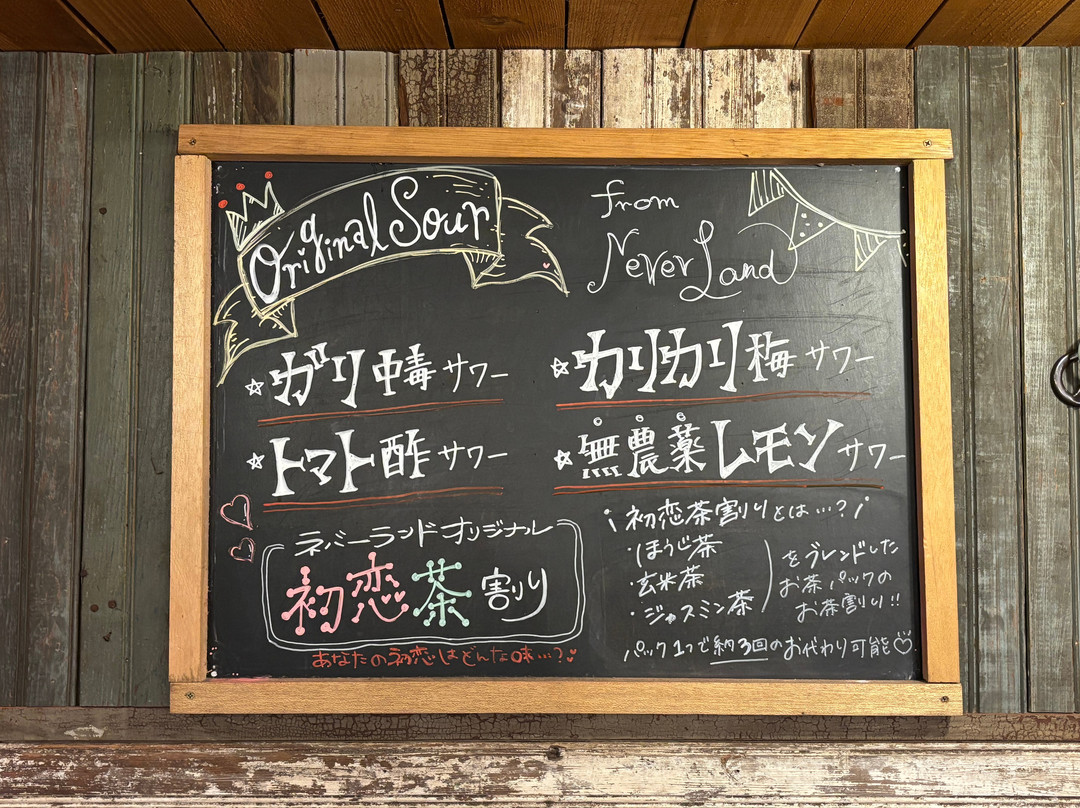 Original Sour
from
Never Land
☆ガリ中毒サワー
☆カリカリ梅サワー
☆トマト酢サワー
☆無農薬レモンサワー
ネバーランドオリジナル
初恋茶割り
あなたの初恋はどんな味…?
初恋茶割りとは…?
・ほうじ茶
・玄米茶
・ジャスミン茶
をブレンドした
お茶パックの
お茶割り!!
パック1つで約3回のお代わり可能♡.